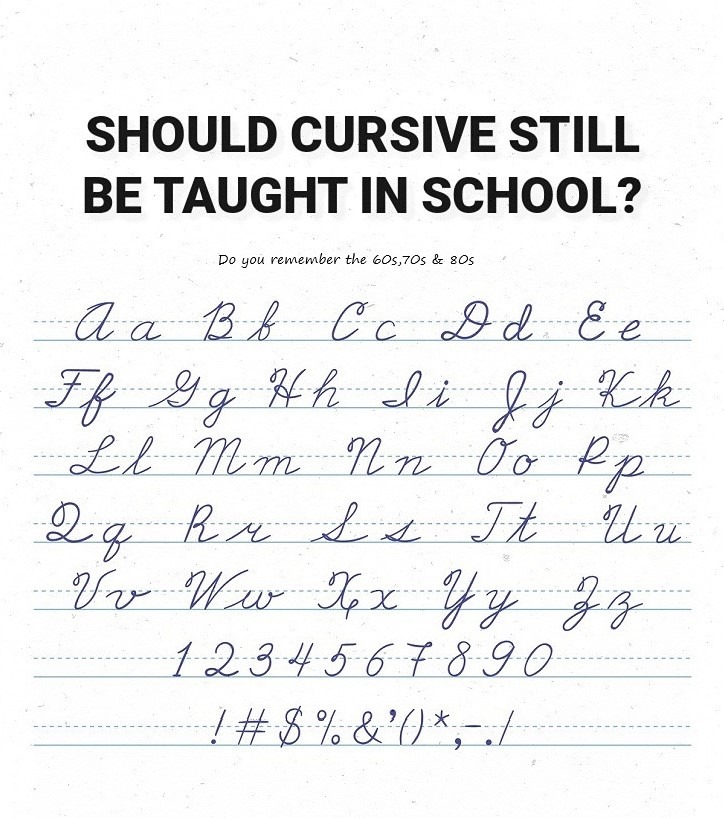 SHOULD CURSIVE STILL
BE TAUGHT IN SCHOOL?
Do you remember the 60s,70s & 80s
A a B b C c D d E e
F f G g H h I i J j K k
L l M m N n O o P p
Q q R r S s T t U u
V v W w X x Y y Z z
1 2 3 4 5 6 7 8 9 0
! # $ % & ' ( ) * , - . /